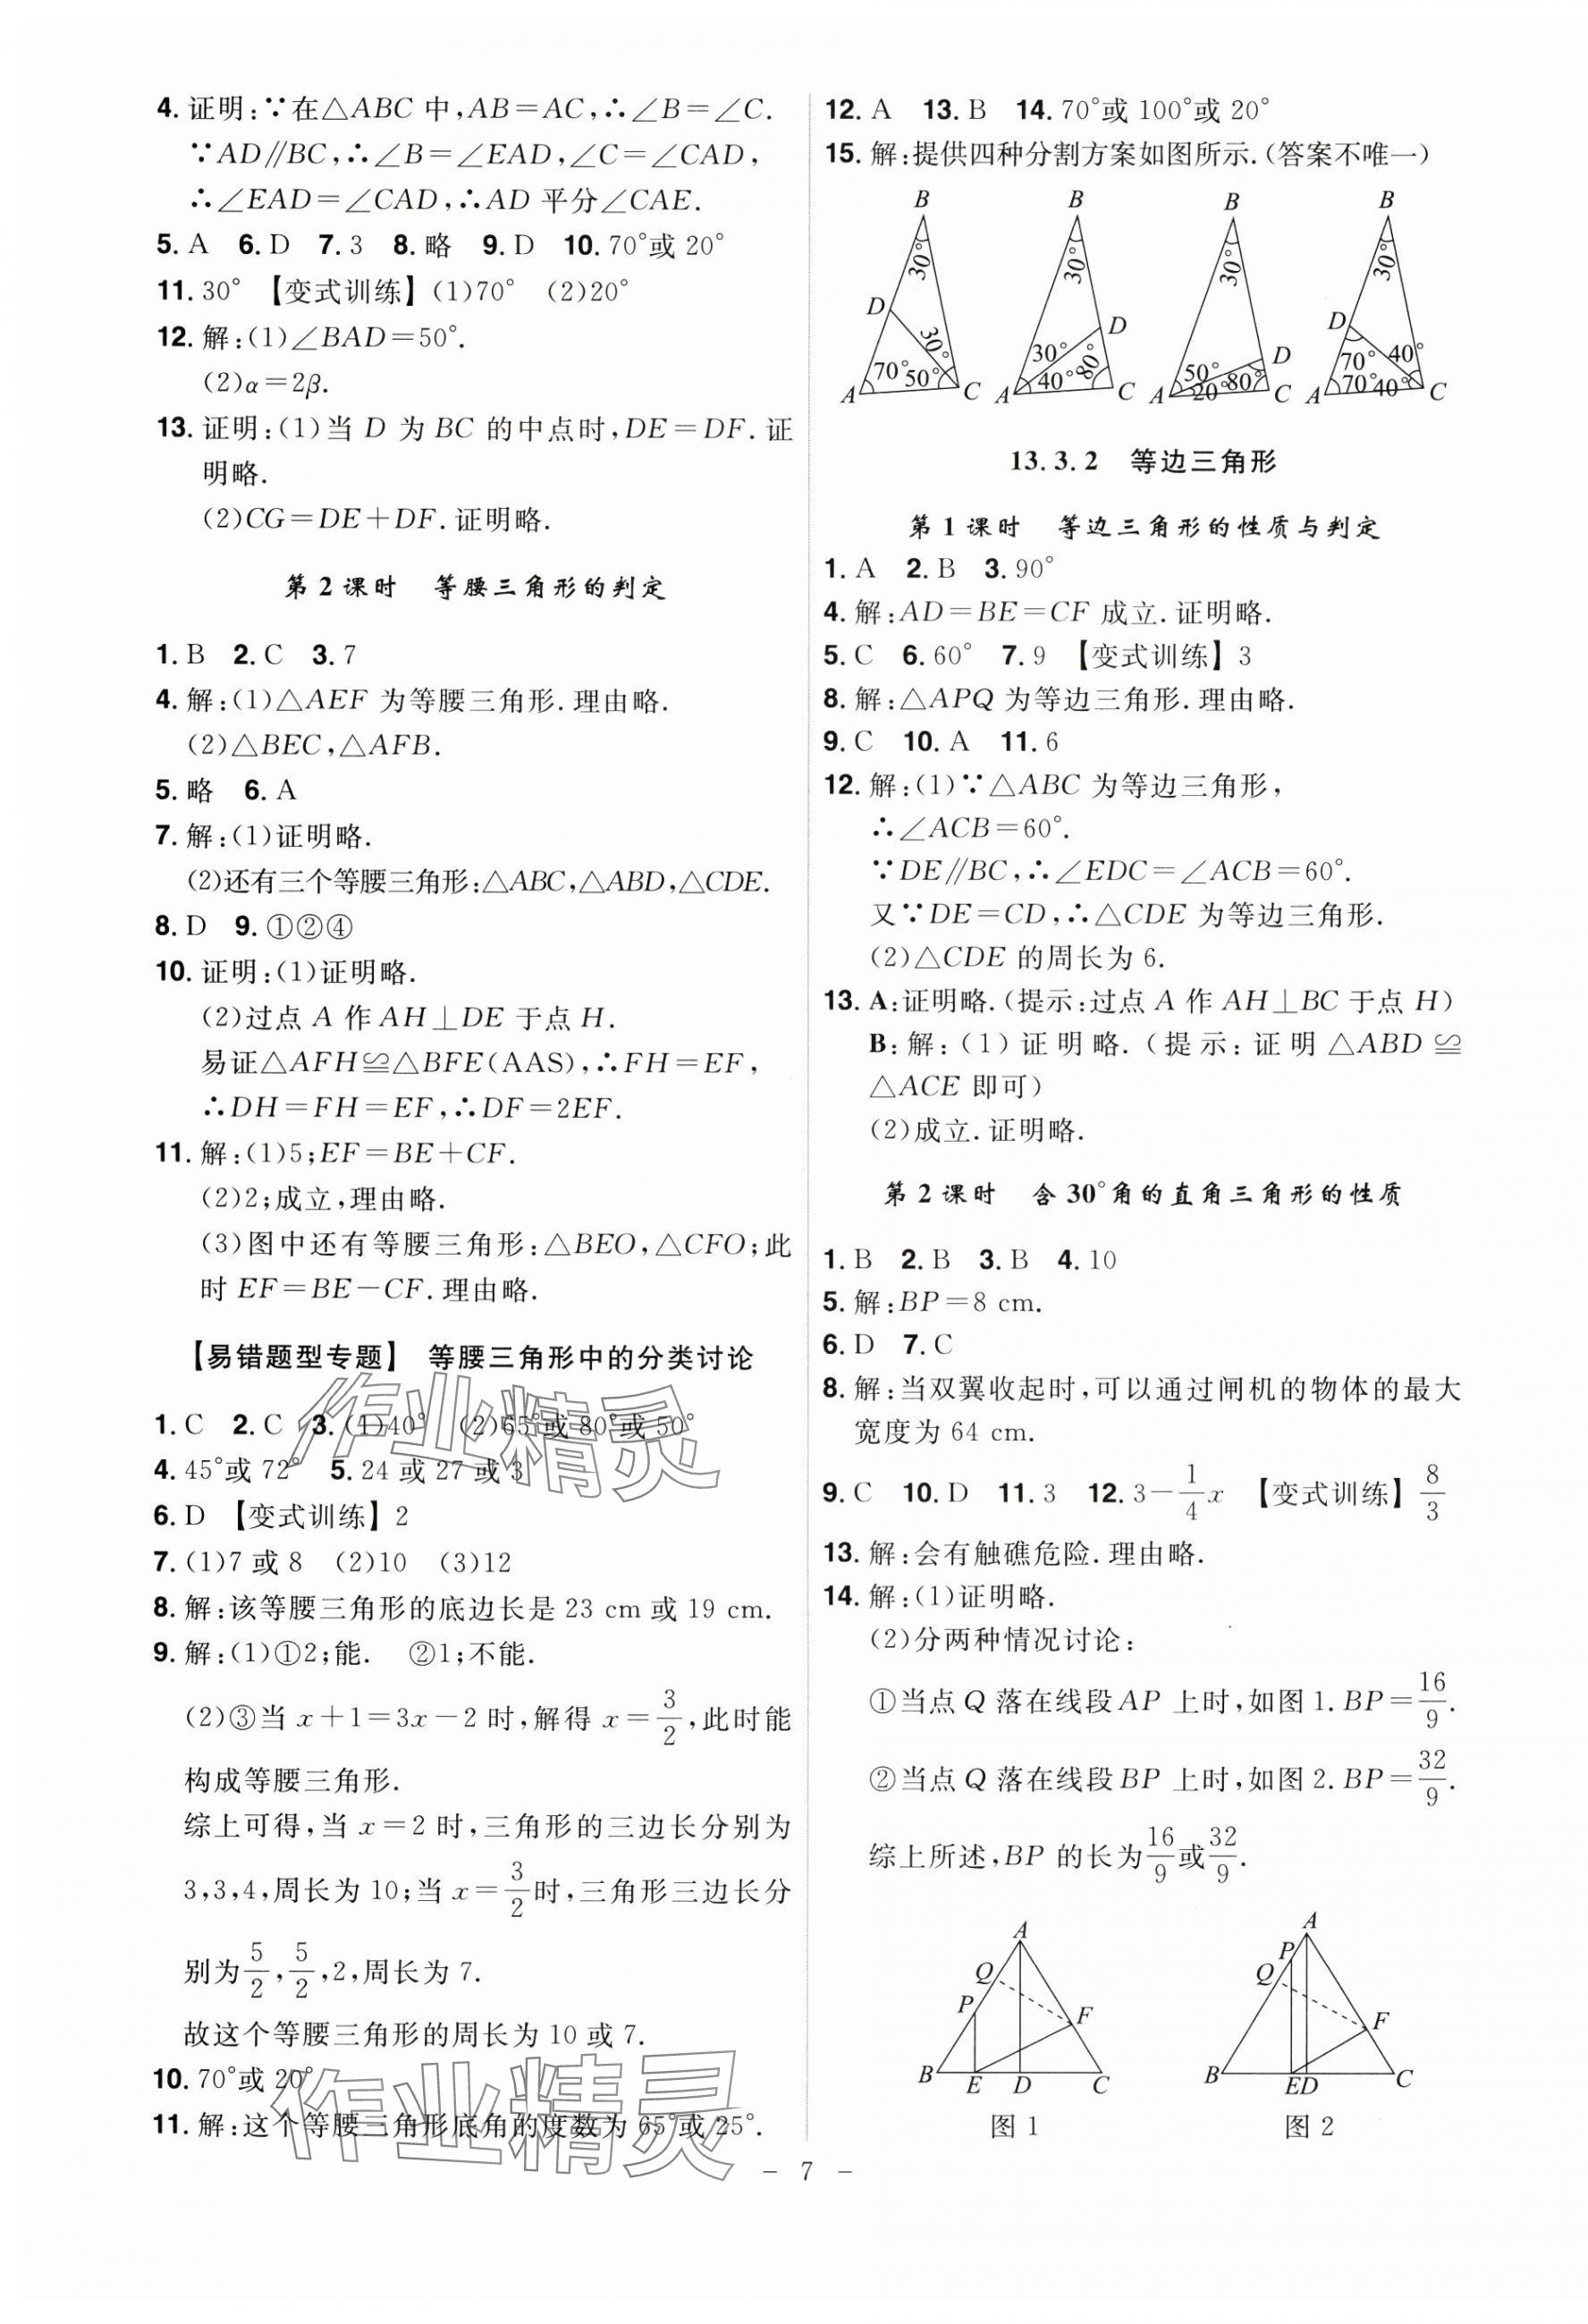 4. 证明:∵在△ABC 中,AB=AC,∴∠B=∠C.
∵AD∥BC,∴∠B=∠EAD,∠C=∠CAD,
∴∠EAD=∠CAD,∴AD 平分∠CAE.
5. A 6. D 7. 3 8. 略 9. D 10. 70°或 20°
11. 30° 【变式训练】(1)70° (2)20°
12. 解:(1)∠BAD=50°.
(2)α=2β.
13. 证明:(1)当 D 为 BC 的中点时,DE=DF. 证
明略.
(2)CG=DE+DF. 证明略.
第 2 课时 等腰三角形的判定
1. B 2. C 3. 7
4. 解:(1)△AEF 为等腰三角形. 理由略.
(2)△BEC,△AFB.
5. 略 6. A
7. 解:(1)证明略.
(2)还有三个等腰三角形:△ABC,△ABD,△CDE.
8. D 9. ①②④
10. 证明:(1)证明略.
(2)过点 A 作 AH⊥DE 于点 H.
易证△AFH≌△BFE(AAS),∴FH=EF,
∴DH=FH=EF,∴DF=2EF.
11. 解:(1)5;EF=BE+CF.
(2)2;成立,理由略.
(3)图中还有等腰三角形:△BEO,△CFO;此
时 EF=BE-CF. 理由略.
【易错题型专题】 等腰三角形中的分类讨论
1. C 2. C 3. (1)40° (2)65°或 80°或 50°
4. 45°或 72° 5. 24 或 27 或 3
6. D 【变式训练】2
7. (1)7 或 8 (2)10 (3)12
8. 解:该等腰三角形的底边长是 23 cm 或 19 cm.
9. 解:(1)①2;能. ②1;不能.
(2)③当 x+1=3x-2 时,解得 x=3/2,此时能
构成等腰三角形.
综上可得,当 x=2 时,三角形的三边长分别为
3,3,4,周长为 10;当 x=3/2时,三角形三边长分
别为5/2,5/2,2,周长为 7.
故这个等腰三角形的周长为 10 或 7.
10. 70°或 20°
11. 解:这个等腰三角形底角的度数为 65°或 25°.
作业精灵
作业精灵
12. A 13. B 14. 70°或 100°或 20°
15. 解:提供四种分割方案如图所示.(答案不唯一)
B 30° D 30° 70° 50° A C
B 30° D 30° 40° 80° A C
B 30° D 50° 20° 80° A C
B 30° D 70° 40° 70° 40° A C
13.3.2 等边三角形
第 1 课时 等边三角形的性质与判定
1. A 2. B 3. 90°
4. 解:AD=BE=CF 成立. 证明略.
5. C 6. 60° 7. 9 【变式训练】3
8. 解:△APQ 为等边三角形. 理由略.
9. C 10. A 11. 6
12. 解:(1)∵△ABC 为等边三角形,
∴∠ACB=60°.
∵DE∥BC,∴∠EDC=∠ACB=60°.
又∵DE=CD,∴△CDE 为等边三角形.
(2)△CDE 的周长为 6.
13. A:证明略.(提示:过点 A 作 AH⊥BC 于点 H)
B:解:(1)证明略.(提示:证明△ABD≌
△ACE 即可)
(2)成立. 证明略.
第 2 课时 含 30°角的直角三角形的性质
1. B 2. B 3. B 4. 10
5. 解:BP=8 cm.
6. D 7. C
8. 解:当双翼收起时,可以通过闸机的物体的最大
宽度为 64 cm.
9. C 10. D 11. 3 12. 3-1/4x 【变式训练】8/3
13. 解:会有触礁危险. 理由略.
14. 解:(1)证明略.
(2)分两种情况讨论:
①当点 Q 落在线段 AP 上时,如图 1. BP=16/9.
②当点 Q 落在线段 BP 上时,如图 2. BP=32/9.
综上所述,BP 的长为16/9或32/9.
A Q P F B E D C
图 1
A P Q F B ED C
图 2
– 7 –